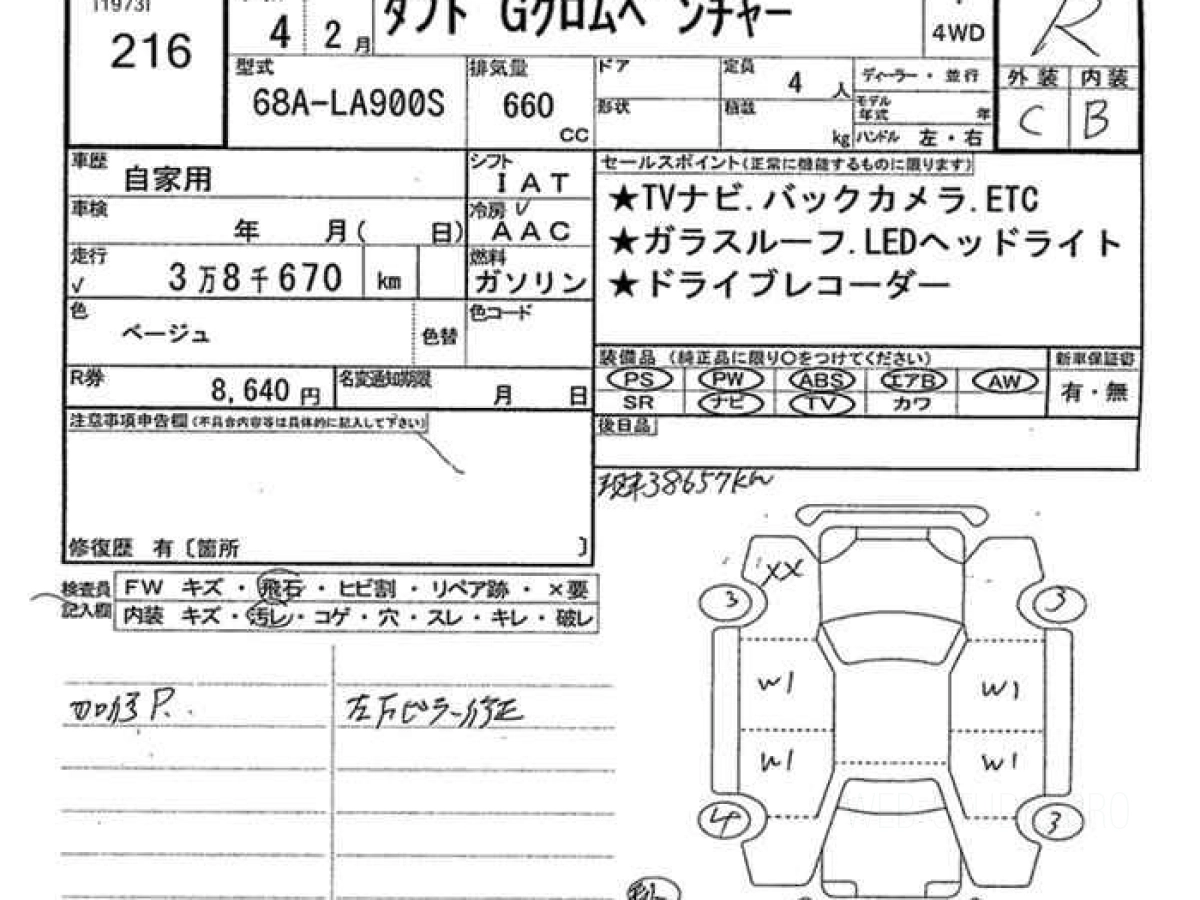 216
4 2月
タフト Gクロムベンチャー
4WD
R
型式
68A-LA900S
排気量
660
CC
ドア
形状
定員
4 人
積載
kg
ディーラー・並行
モデル年式 年
ハンドル 左・右
外装 内装
C B
車歴
自家用
シフト
IAT
車検
年 月( 日)
冷房 √
AAC
走行
√ 3万8千670 km
燃料
ガソリン
色
ベージュ
色替
色コード
R券
8,640 円
名変通知期限
月 日
セールスポイント(正常に機能するものに限ります)
★TVナビ.バックカメラ.ETC
★ガラスルーフ.LEDヘッドライト
★ドライブレコーダー
装備品 (純正品に限り○をつけてください)
新車保証書
PS PW ABS エアB AW
SR ナビ TV カワ
有・無
注意事項申告欄(不具合内容等は具体的に記入して下さい)
後日品
現車38657km
修復歴 有〔箇所 〕
検査員
記入欄
FW キズ・飛石・ヒビ割・リペア跡・×要
内装 キズ・汚レ・コゲ・穴・スレ・キレ・破レ
XX
3 3
W1 W1
W1 W1
4 3
左Fピラー修正